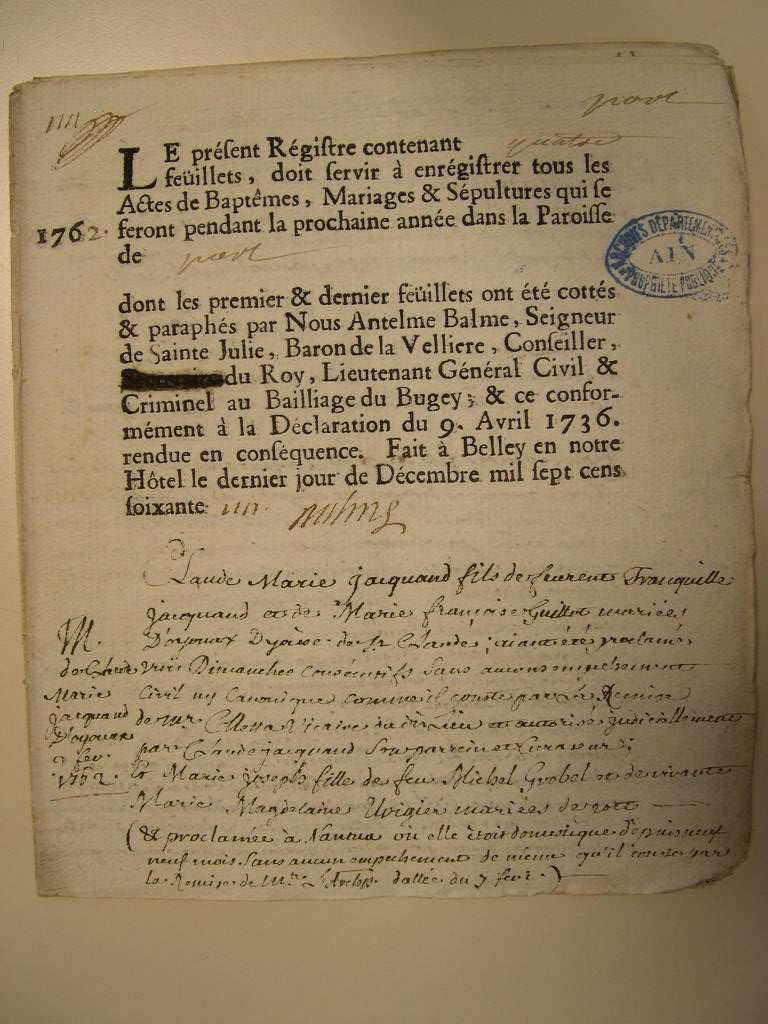 port
LE présent Régistre contenant quatre
feüillets, doit servir à enrégistrer tous les
Actes de Baptêmes, Mariages & Sépultures qui se
1762. feront pendant la prochaine année dans la Paroisse
de port
ARCHIVES DÉPARTEMENTALES
AIN
PROPRIÉTÉ PUBLIQUE
dont les premier & dernier feüillets ont été cottés
& paraphés par Nous Antelme Balme, Seigneur
de Sainte Julie, Baron de la Velliere, Conseiller,
du Roy, Lieutenant Général Civil &
Criminel au Bailliage du Bugey; & ce confor-
mément à la Déclaration du 9. Avril 1736.
rendue en conséquence. Fait à Belley en notre
Hôtel le dernier jour de Décembre mil sept cens
soixante un. Balme
Claude Marie jacquand fils de feu Tranquille
jacquand et de Marie françoise Guillot mariées
D'oyonax Dyocese de St Claude; aiant été proclamé
trois Dimanches consécutifs sans aucun empechement
Civil ny Canonique comme il conste par la Remise
de Mr Vicaire du dit Lieu et autorisé judiciellement
par Claude jacquand son parrein et Curateur;
M.
de Claude
Marie
jacquand
D'oyonax
fev.
1762.
Et Marie joseph fille de feu Michel Grobel et de vivante
Marie Magdelaine Uvigier mariées de port
(& proclamée à Nantua où elle étoit domestique depuis neuf
neuf mois sans aucun empechement de même qu'il conste par
la Remise de Mr dattée du 7 fevr.)